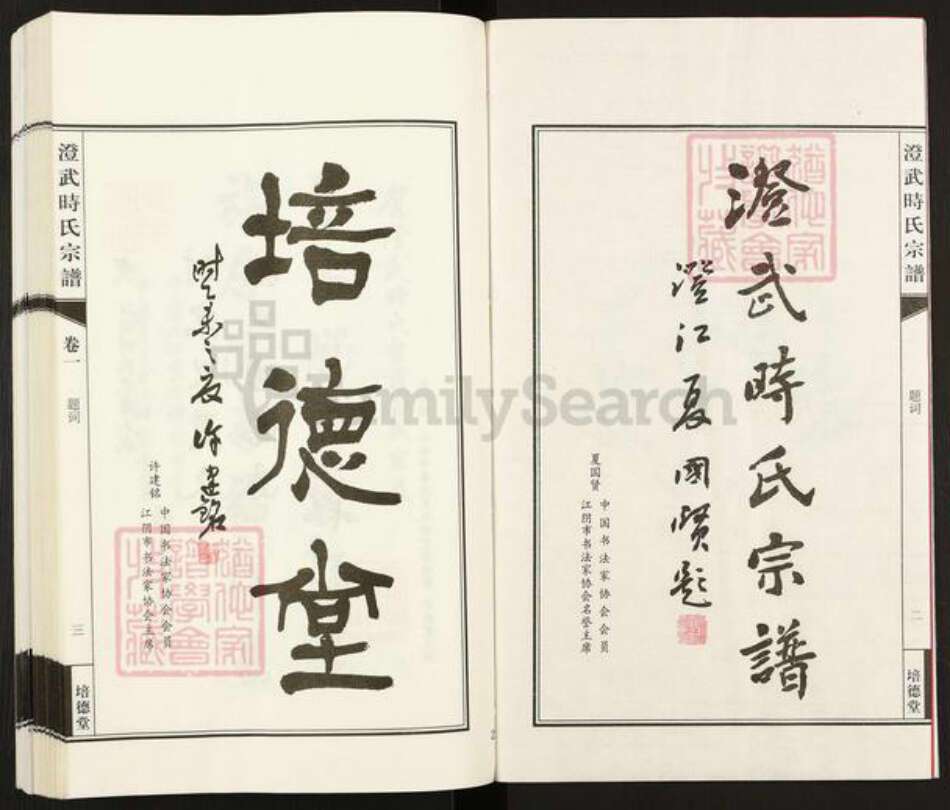 澄武時氏宗譜
题词
二
培德堂
澄武時氏宗譜
澄江夏國賢題
夏国贤 中国书法家协会会员
江阴市书法家协会名誉主席
培德堂
許建銘
许建铭 中国书法家协会会员
江阴市书法家协会主席
澄武時氏宗譜
卷一
题词
三
培德堂
FamilySearch
2